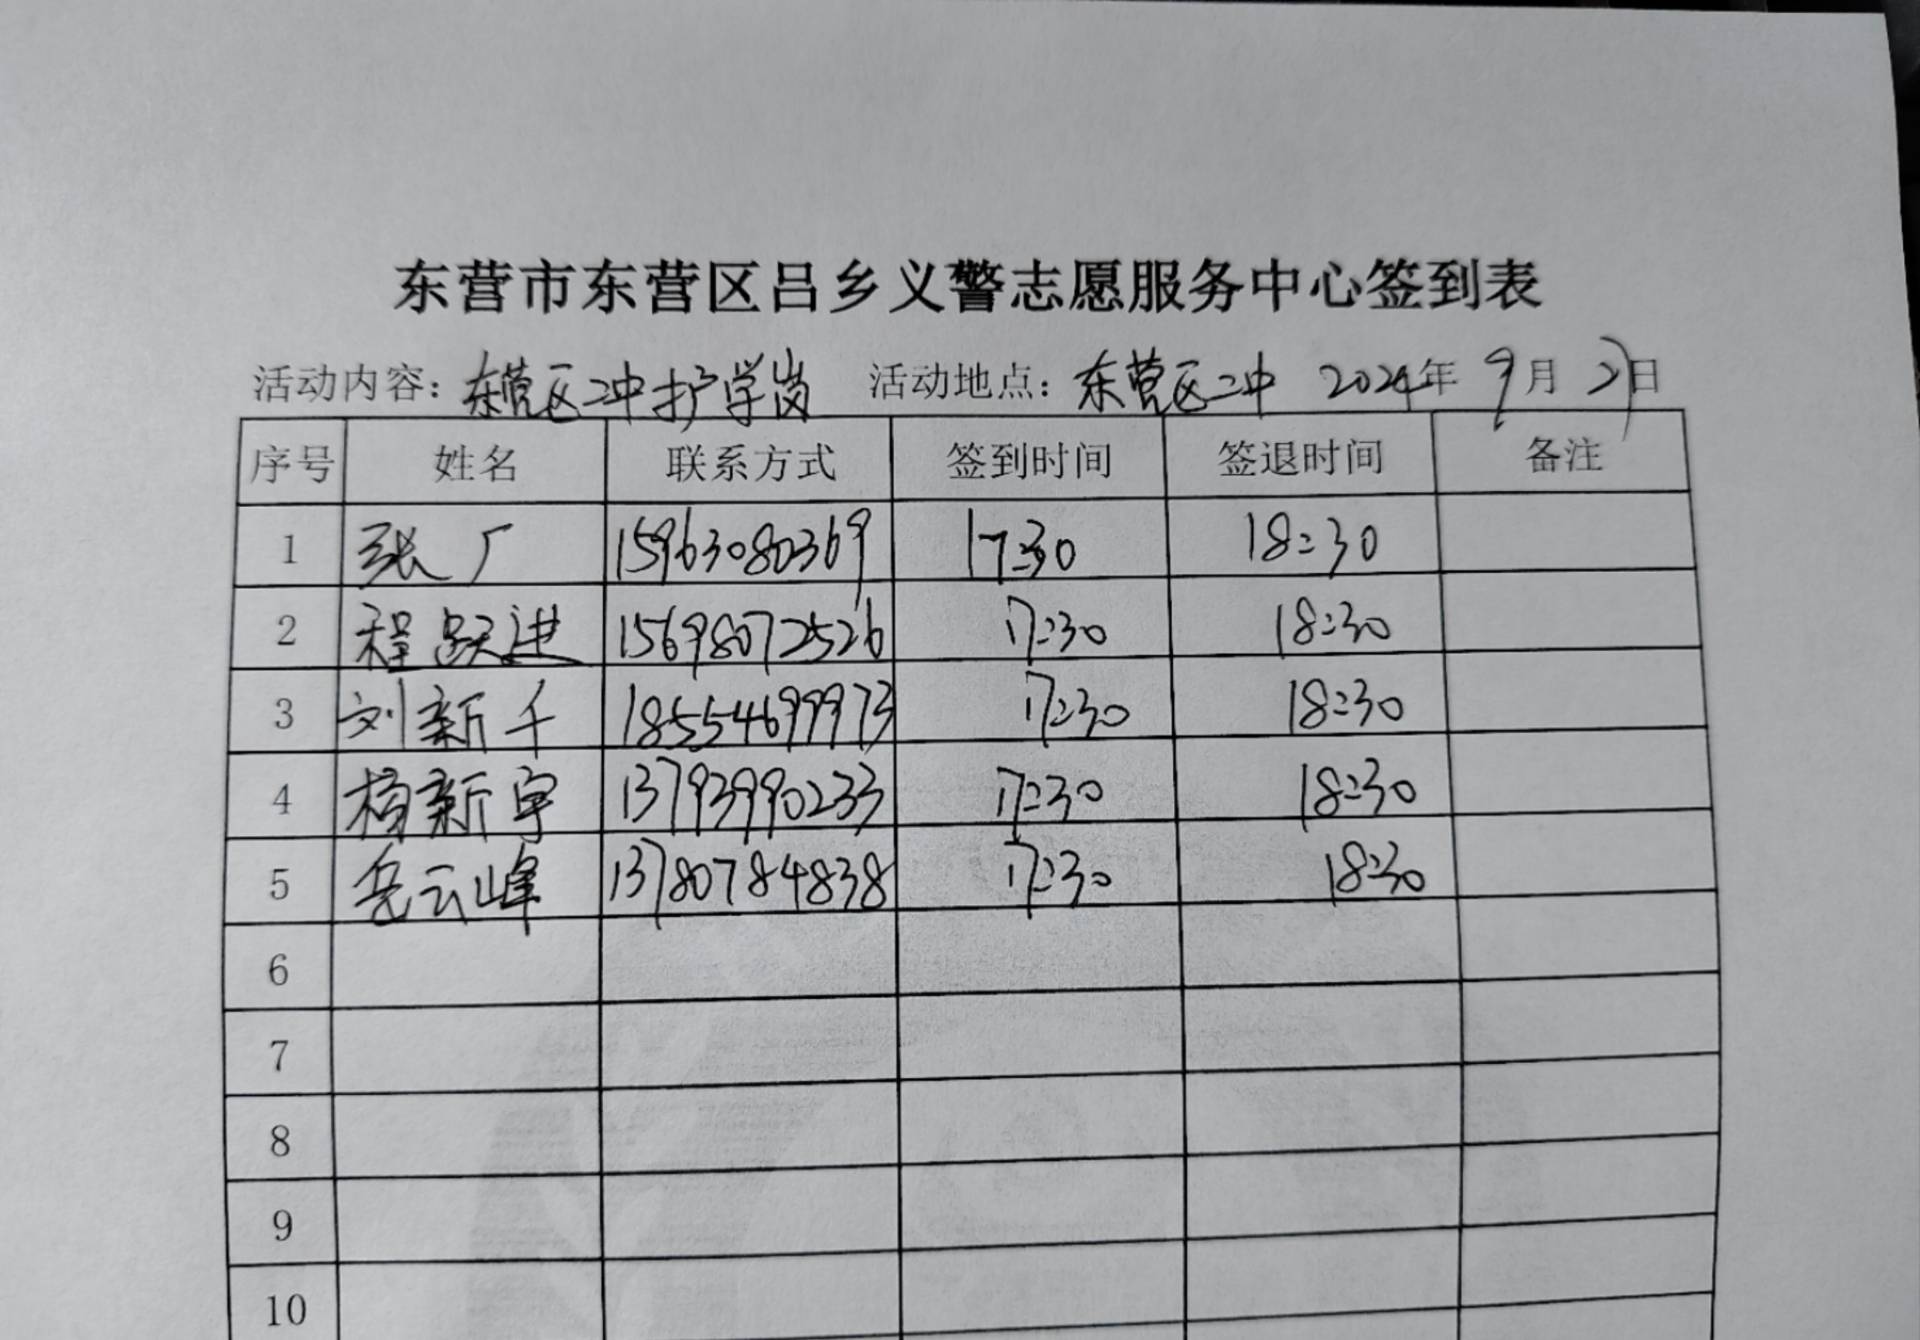 东营市东营区吕乡义警志愿服务中心签到表
活动内容：东营区二中护学岗 活动地点：东营区二中 2024年 9月 27日
序号 姓名 联系方式 签到时间 签退时间 备注
1 张广 15963080369 17:30 18:30
2 程跃进 15698072526 17:30 18:30
3 刘新千 18554699973 17:30 18:30
4 杨新宇 13793990233 17:30 18:30
5 岳云峰 13780784838 17:30 18:30
6
7
8
9
10